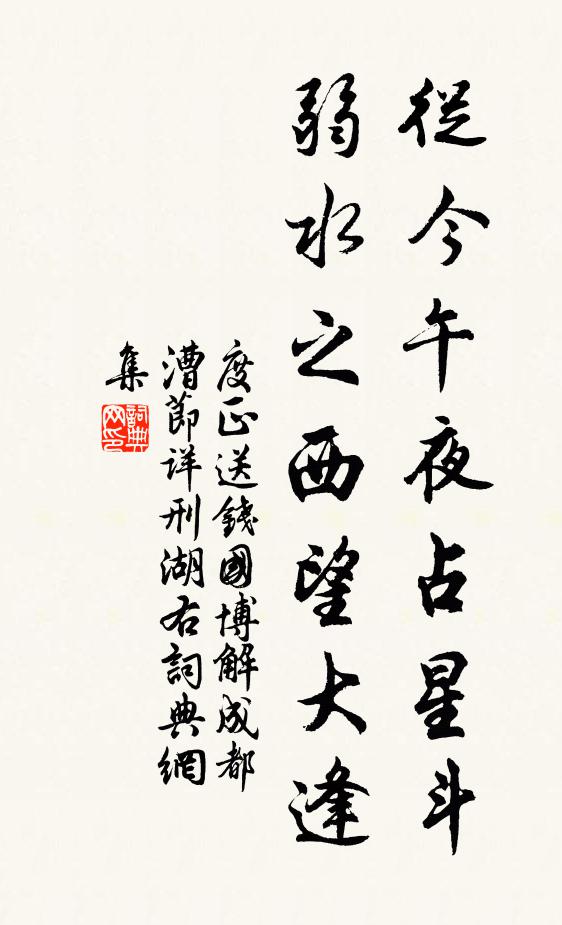 從今午夜占星斗
弱水之西望大逢
度正送錢國博解成都
漕節詳刑湖右詞典網
集
詞典网印